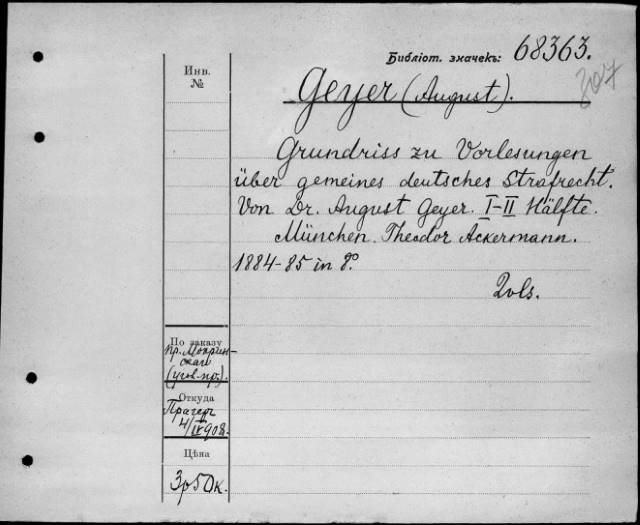 Библіот. значекъ: 68363.
Инв.
№
207
Geyer (August).
Grundriss zu Vorlesungen
über gemeines deutsches Strafrecht.
Von Dr. August Geyer. I-II Hälfte.
München. Theodor Ackermann.
1884-85 in 8°.
2 vls.
По заказу
пр. Мокрин-
скаго
(угол. пр.).
Откуда
Прагеръ
4/IV 908.
Цѣна
3 р 50 к.